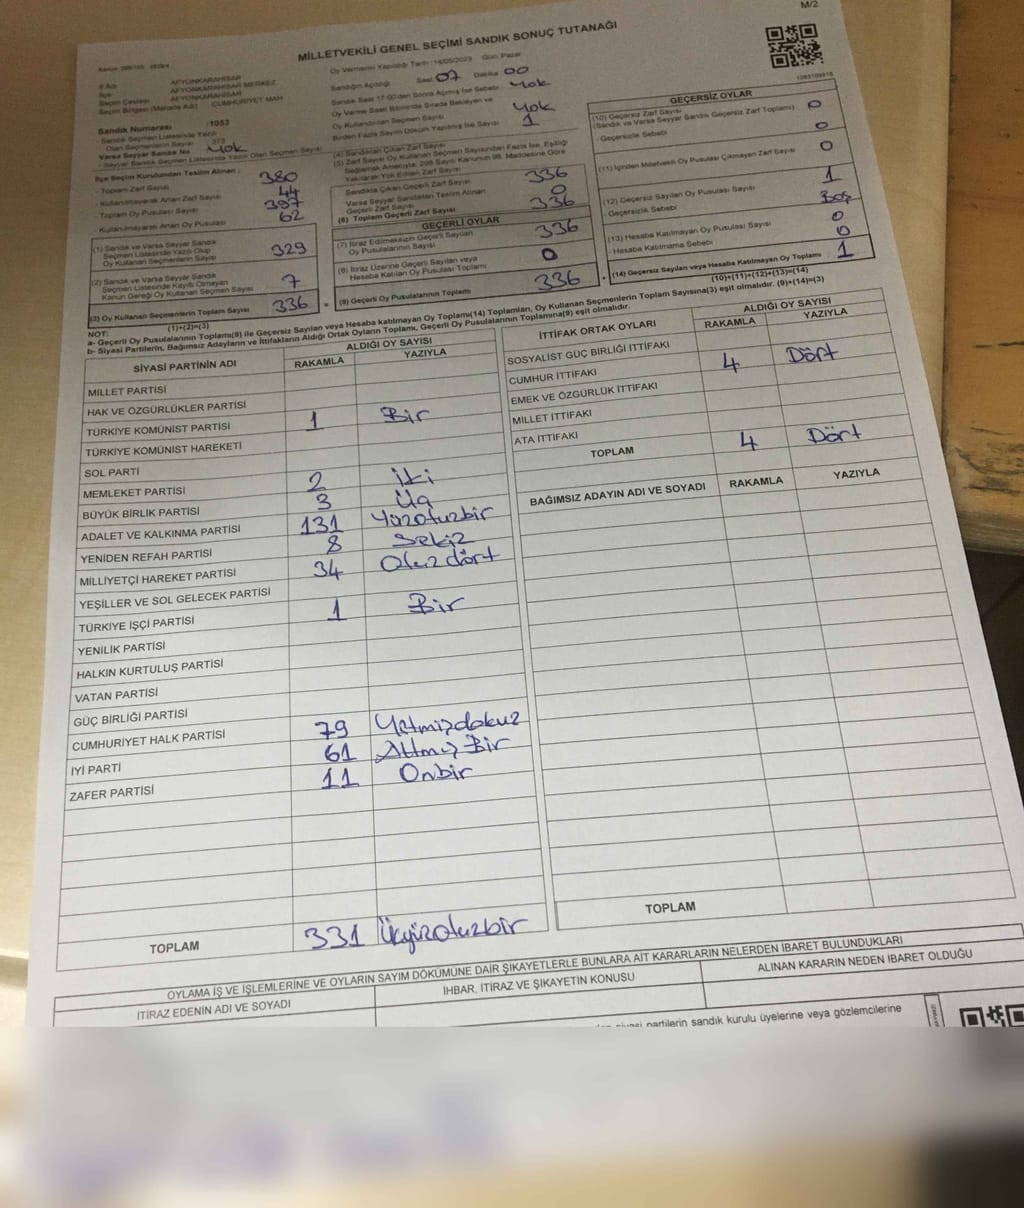 M/2
MİLLETVEKİLİ GENEL SEÇİMİ SANDIK SONUÇ TUTANAĞI
İl Adı AFYONKARAHİSAR
İlçe AFYONKARAHİSAR MERKEZ
Seçim Çevresi AFYONKARAHİSAR
Seçim Bölgesi (Mahalle Adı) CUMHURİYET MAH
Oy Vermenin Yapıldığı Tarih :14/05/2023 Gün: Pazar
Sandığın Açıldığı Saat 07 Dakika 00
Sandık Saat 17:00'den Sonra Açılmış İse Sebebi Yok
Oy Verme Saati Bitiminde Sırada Bekleyen ve
Oy Kullandırılan Seçmen Sayısı Yok
Birden Fazla Sayım Döküm Yapılmış İse Sayısı 1
Sandık Numarası :1053
Sandık Seçmen Listesinde Yazılı
Olan Seçmenlerin Sayısı 373
Varsa Seyyar Sandık No Yok
- Seyyar Sandık Listesinde Yazılı Olan Seçmen Sayısı
İlçe Seçim Kurulundan Teslim Alınan:
- Toplam Zarf Sayısı 380
- Kullanılmayarak Artan Zarf Sayısı 44
- Toplam Oy Pusulası Sayısı 397
- Kullanılmayarak Artan Oy Pusulası 62
(1) Sandık ve Varsa Seyyar Sandık
Seçmen Listesinde Yazılı Olup
Oy Kullanan Seçmenlerin Sayısı 329
(2) Sandık ve Varsa Seyyar Sandık
Seçmen Listesinde Kayıtlı Olmayan
Kanun Gereği Oy Kullanan Seçmen Sayısı 7
(3) Oy Kullanan Seçmenlerin Toplam Sayısı 336
(1)+(2)=(3)
(4) Sandıktan Çıkan Zarf Sayısı
(5) Zarf Sayısı Oy Kullanan Seçmen Sayısından Fazla İse, Eşitliği
Sağlamak Amacıyla; 298 Sayılı Kanunun 98. Maddesine Göre
Yakılarak Yok Edilen Zarf Sayısı
Sandıkta Çıkan Geçerli Zarf Sayısı 336
Varsa Seyyar Sandıktan Teslim Alınan
Geçerli Zarf Sayısı 0
(6) Toplam Geçerli Zarf Sayısı 336
GEÇERLİ OYLAR
(7) İtiraz Edilmeksizin Geçerli Sayılan
Oy Pusulalarının Sayısı 336
(8) İtiraz Üzerine Geçerli Sayılan veya
Hesaba Katılan Oy Pusulası Toplamı 0
(9) Geçerli Oy Pusulalarının Toplamı 336
1083109916
GEÇERSİZ OYLAR
(10) Geçersiz Zarf Sayısı
(Sandık ve Varsa Seyyar Sandık Geçersiz Zarf Toplamı) 0
- Geçersizlik Sebebi 0
(11) İçinden Milletvekili Oy Pusulası Çıkmayan Zarf Sayısı 0
(12) Geçersiz Sayılan Oy Pusulası Sayısı 1
- Geçersizlik Sebebi Boş
(13) Hesaba Katılmayan Oy Pusulası Sayısı 0
- Hesaba Katılmama Sebebi 0
(14) Geçersiz Sayılan veya Hesaba Katılmayan Oy Toplamı 1
(10)+(11)+(12)+(13)=(14)
NOT:
a- Geçerli Oy Pusulalarının Toplamı(9) ile Geçersiz Sayılan veya Hesaba katılmayan Oy Toplamı(14) Toplamları, Oy Kullanan Seçmenlerin Toplam Sayısına(3) eşit olmalıdır. (9)+(14)=(3)
b- Siyasi Partilerin, Bağımsız Adayların ve İttifakların Aldığı Ortak Oyların Toplamı, Geçerli Oy Pusulalarının Toplamına(9) eşit olmalıdır.
SİYASİ PARTİNİN ADI ALDIĞI OY SAYISI
RAKAMLA YAZIYLA
MİLLET PARTİSİ
HAK VE ÖZGÜRLÜKLER PARTİSİ
TÜRKİYE KOMÜNİST PARTİSİ 1 Bir
TÜRKİYE KOMÜNİST HAREKETİ
SOL PARTİ
MEMLEKET PARTİSİ 2 İki
BÜYÜK BİRLİK PARTİSİ 3 Üç
ADALET VE KALKINMA PARTİSİ 131 Yüzotuzbir
YENİDEN REFAH PARTİSİ 8 Sekiz
MİLLİYETÇİ HAREKET PARTİSİ 34 Otuzdört
YEŞİLLER VE SOL GELECEK PARTİSİ
TÜRKİYE İŞÇİ PARTİSİ 1 Bir
YENİLİK PARTİSİ
HALKIN KURTULUŞ PARTİSİ
VATAN PARTİSİ
GÜÇ BİRLİĞİ PARTİSİ
CUMHURİYET HALK PARTİSİ 79 Yetmişdokuz
İYİ PARTİ 61 Altmış Bir
ZAFER PARTİSİ 11 Onbir
TOPLAM 331 Üçyüzotuzbir
İTTİFAK ORTAK OYLARI ALDIĞI OY SAYISI
RAKAMLA YAZIYLA
SOSYALİST GÜÇ BİRLİĞİ İTTİFAKI
CUMHUR İTTİFAKI 4 Dört
EMEK VE ÖZGÜRLÜK İTTİFAKI
MİLLET İTTİFAKI
ATA İTTİFAKI
TOPLAM 4 Dört
BAĞIMSIZ ADAYIN ADI VE SOYADI RAKAMLA YAZIYLA
TOPLAM
OYLAMA İŞ VE İŞLEMLERİNE VE OYLARIN SAYIM DÖKÜMÜNE DAİR ŞİKAYETLERLE BUNLARA AİT KARARLARIN NELERDEN İBARET BULUNDUKLARI
İTİRAZ EDENİN ADI VE SOYADI İHBAR, İTİRAZ VE ŞİKAYETİN KONUSU ALINAN KARARIN NEDEN İBARET OLDUĞU
siyasi partilerin sandık kurulu üyelerine veya gözlemcilerine